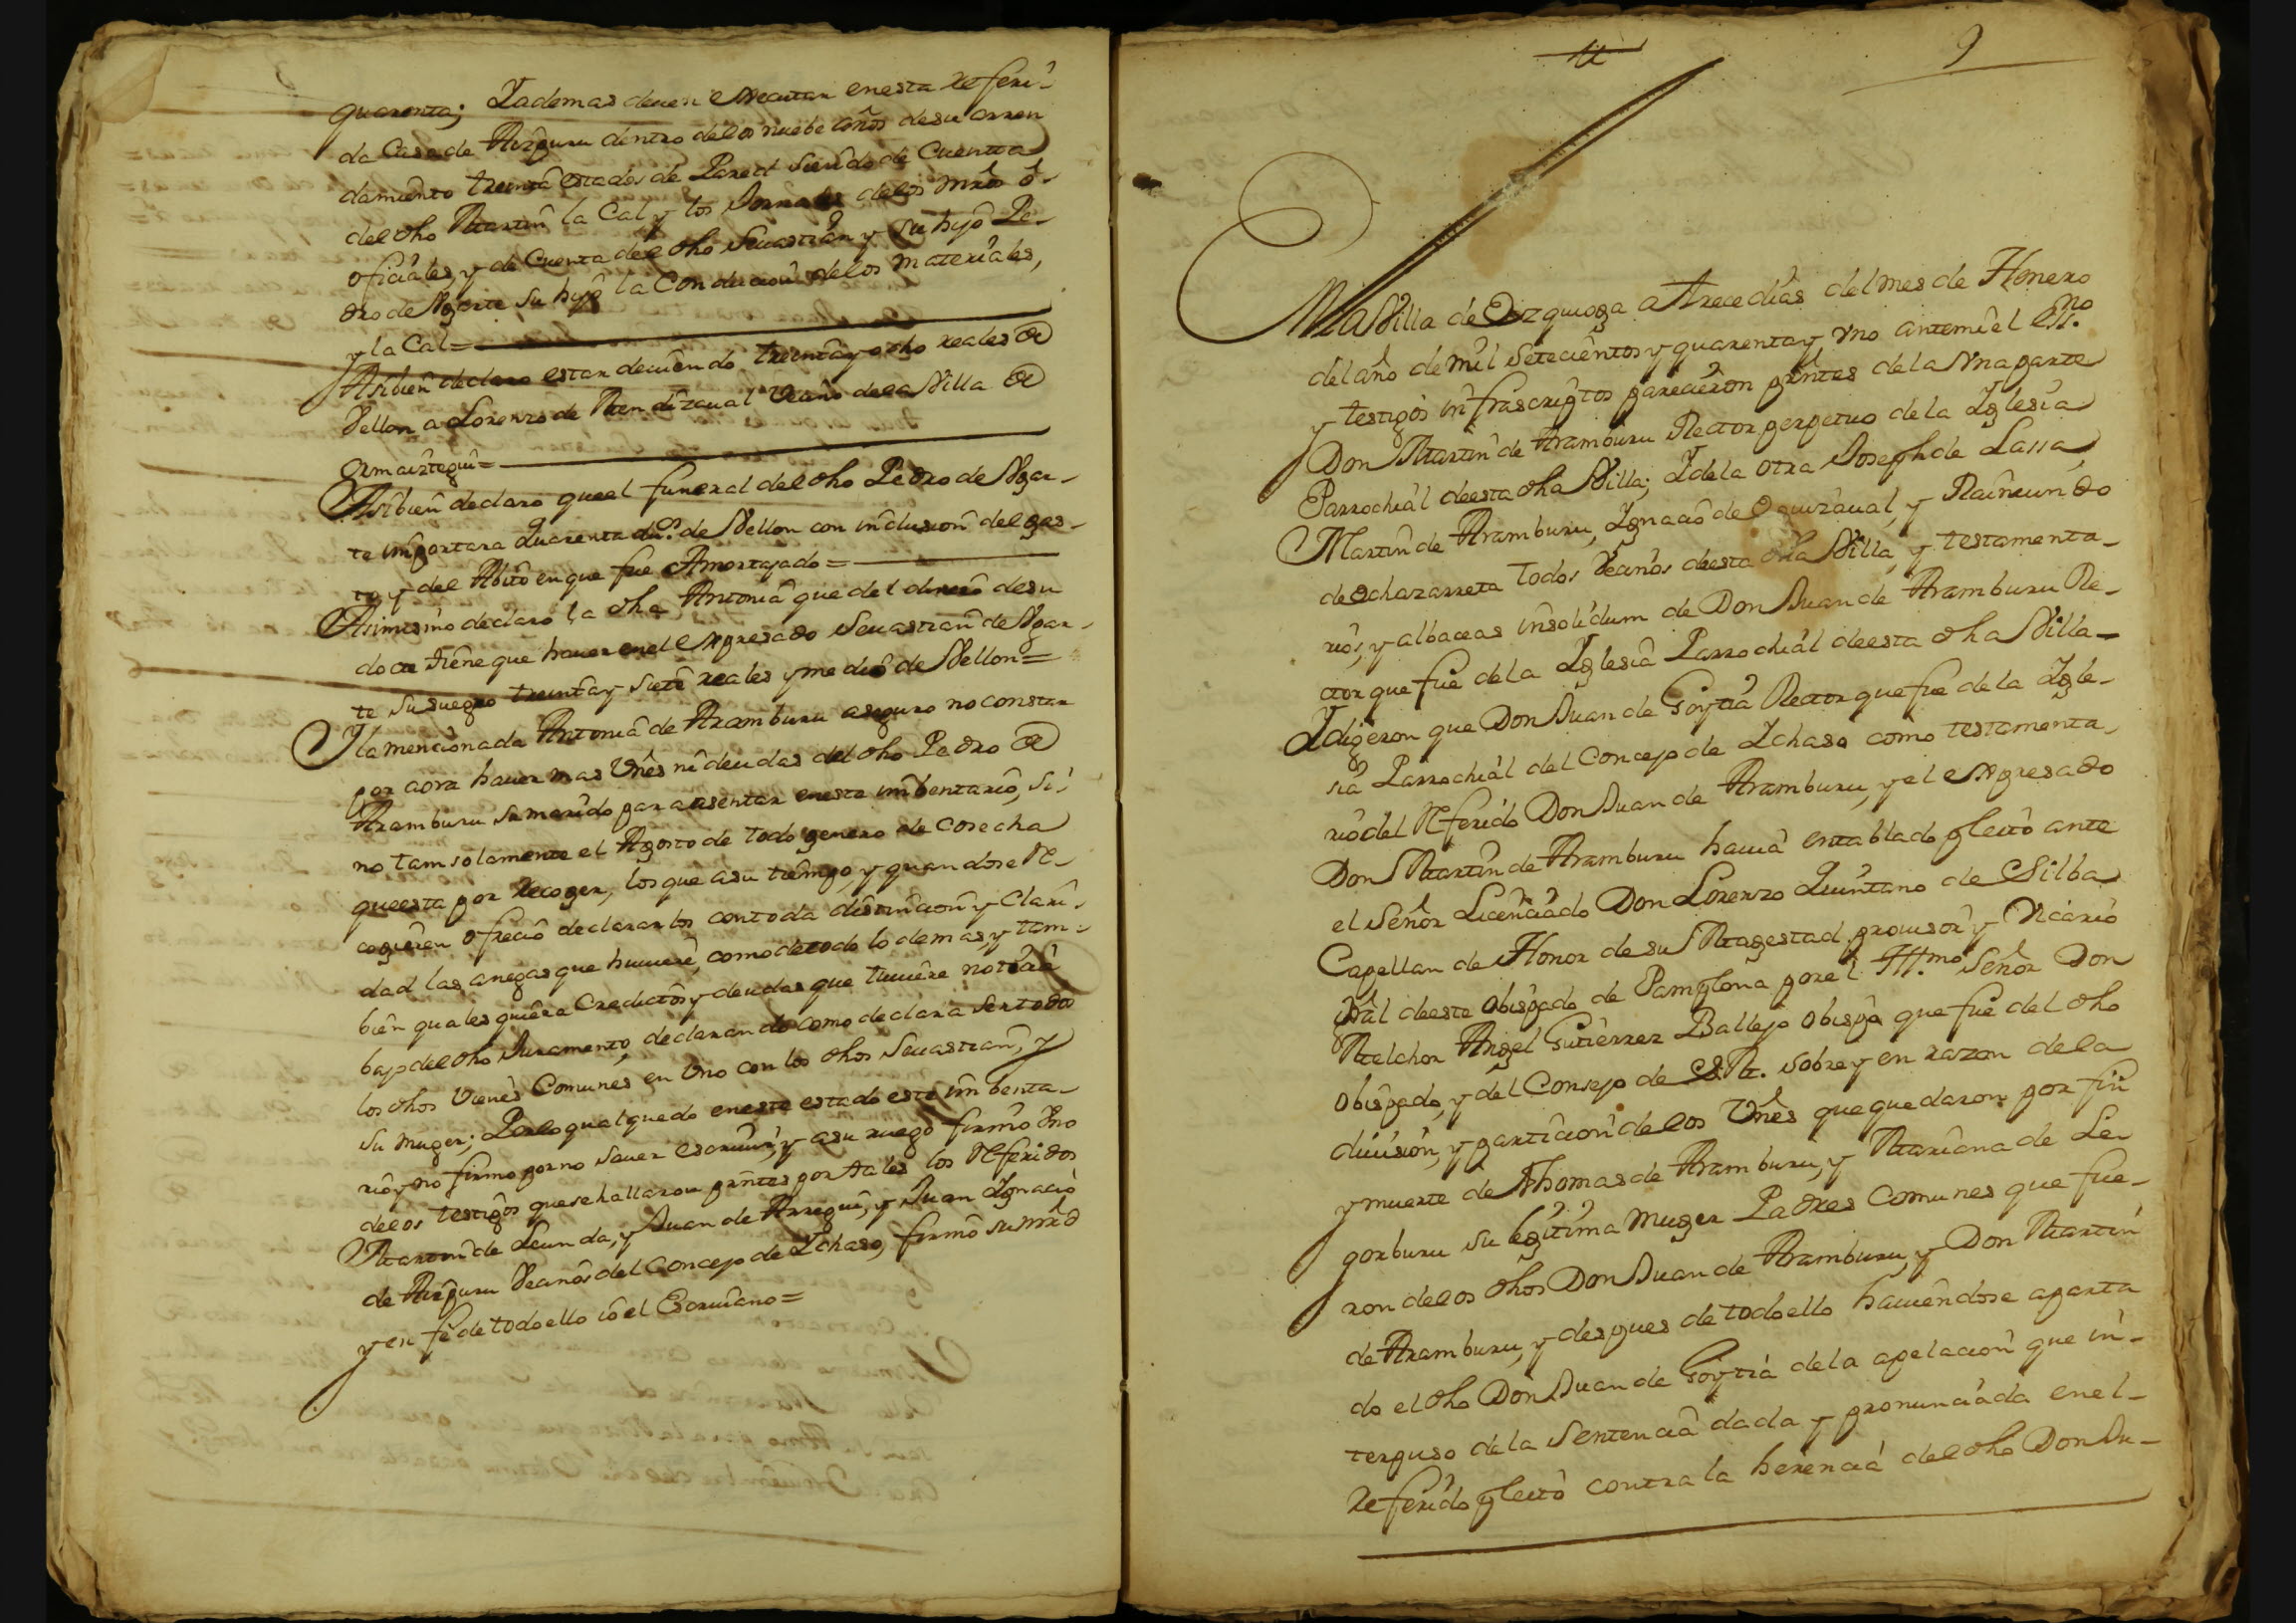 quarenta; Yademas deuen executar enesta referi-
da Casa de Aizpuru dentro delos nuebe años desu arren
damiento treinta estados de Parett siendo de Cuenta
del dho Martin la Cal y los Jornales delos mros o-
ficiales, y de Cuenta del dho Seuastian y su hijo Pe-
dro de Ugarte su hijo la Conducion delos materiales,
y la Cal=
Asibien declaro estar deuiendo treinta y ocho reales de
Vellon a Lorenzo de Mendizaual Vecino dela Villa de
Ormaiztegui=
Asibien declaro queel funeral del dho Pedro de Ugar-
te importara quarenta dus. de Vellon con inclusion del gas-
to, y del Abito en que fue Amortajado=
Asimismo declaro la dha Antonia que del dinero desu
dote tiene que hauer enel expresado Seuastian de Ugar-
te su suegro treinta y siete reales y medio de Vellon=
Y la mencionada Antonia de Aramburu aseguro no constar
por aora hauer mas Vnes ni deudas del dho Pedro de
Aramburu su marido para asentar eneste imbentario, si-
no tamsolamente el Agosto de todo genero de cosecha
queesta por recoger, los que asu tiempo, y quandose re-
cogieren ofrecio declararlos contoda distincion y Clari-
dad las anegas que huuiere, como detodo lo demas, y tam-
bien quales quiera Creditos y deudas que tuuiere notará
bajo del dho Juramento, declarando como declara ser todos
los dhos Vienes Comunes en Vno con los dhos Seuastian, y
su muger; Porloqual quedo eneste estado este imbenta-
rio y no firmo por no sauer escriuir, y asu ruego firmo Vno
delos testigos que se hallaron prntes por tales los referidos
Martin de Leunda, y Juan de Arregui, y Juan Ignacio
de Aizpuru Vecinos del Concejo de Ychaso, firmó su mrd
y en fe de todo ello io el Escriuano=
9
En la Villa de Ezquioga a trece dias del mes de Henero
del año de mil Setecientos y quarenta y vno antemi el essno.
y testigos infrascriptos parecieron prntes de la Vna parte
Don Martin de Aramburu Rector perpetuo de la Yglesia
Parrochial deesta dha Villa; Y de la otra Joseph de Lassa,
Martin de Aramburu, Ygnacio de Eguizaual, y Raimundo
de Echazarreta todos Vecinos deesta dha Villa, y testamenta-
rios, y albaceas insolidum de Don Juan de Aramburu Re-
ctor que fue dela Yglesia Parrochial deesta dha Villa-
Y digeron que Don Juan de Goytia Rector que fue de la Ygle-
sia Parrochial del Concejo de Ychaso como testamenta-
rio del referido Don Juan de Aramburu, y el expresado
Don Martin de Aramburu hauia entablado pleito ante
el Señor Licenciado Don Lorenzo Quintano de Silba
Capellan de Honor de su Magestad, prouisor y Vicario
gral deeste Obispado de Pamplona por el Illmo. Señor Don
Melchor Angel Gutierrez Ballejo obispo que fue del dho
obispado, y del Consejo de S.M. sobre y en razon dela
diuision, y particion delos Vnes que quedaron por fin
y muerte de Thomas de Aramburu, y Mariana de Le-
gorburu su legitima muger Padres Comunes que fue-
ron delos dhos Don Juan de Aramburu, y Don Martin
de Aramburu, y despues de todo ello hauiendose aparta
do el dho Don Juan de Goytia dela apelacion que in-
terpuso de la Sentencia dada y pronunciada enel-
referido pleito contra la herencia del dho Don Ju-